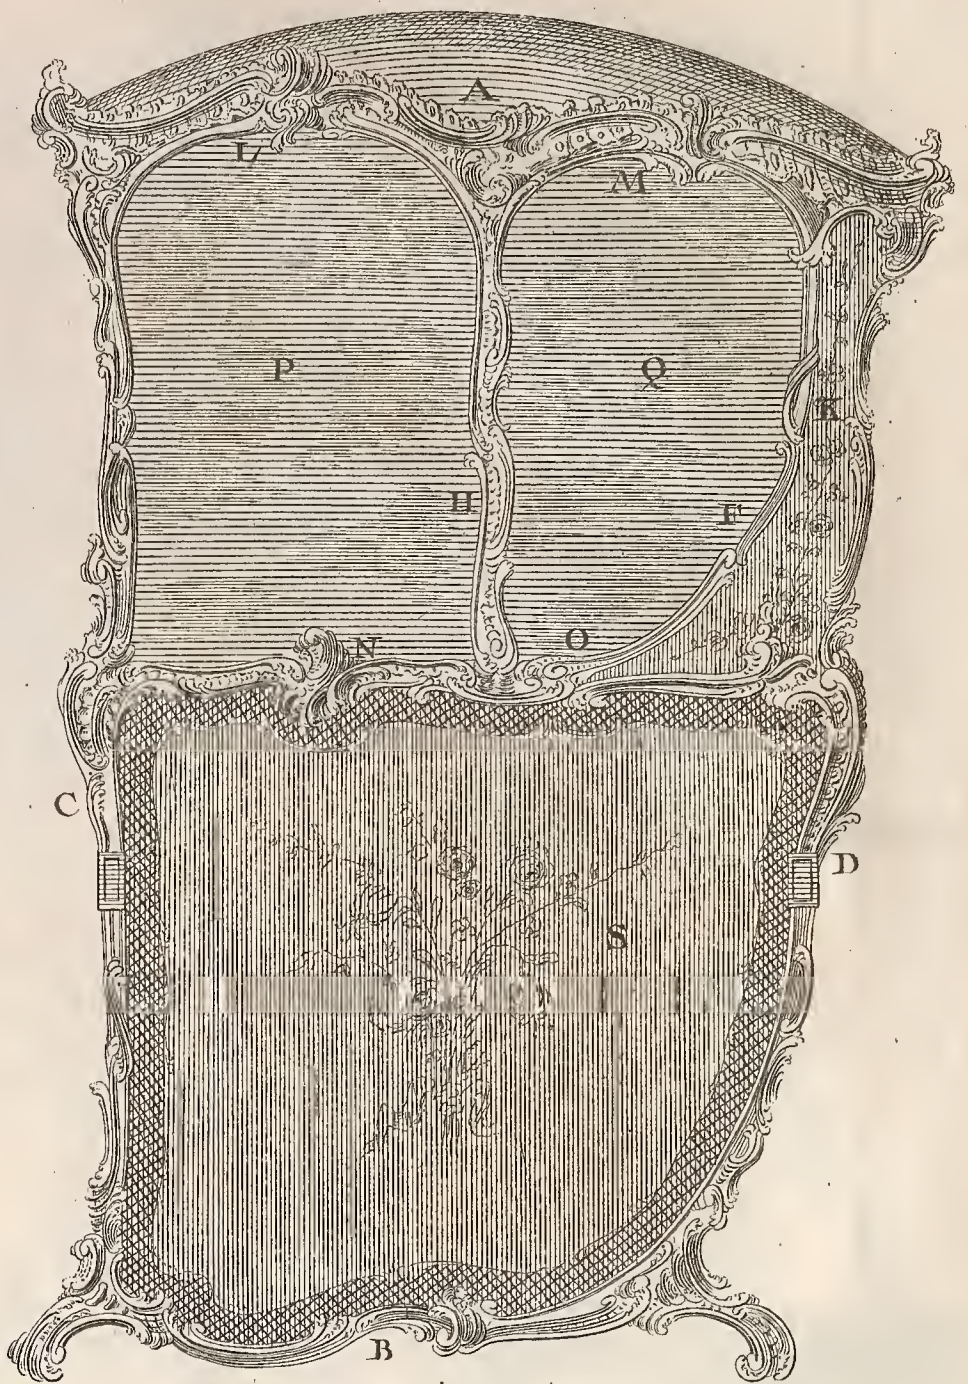 A
L
M
P
Q
K
H
F
O
N
C
D
S
B